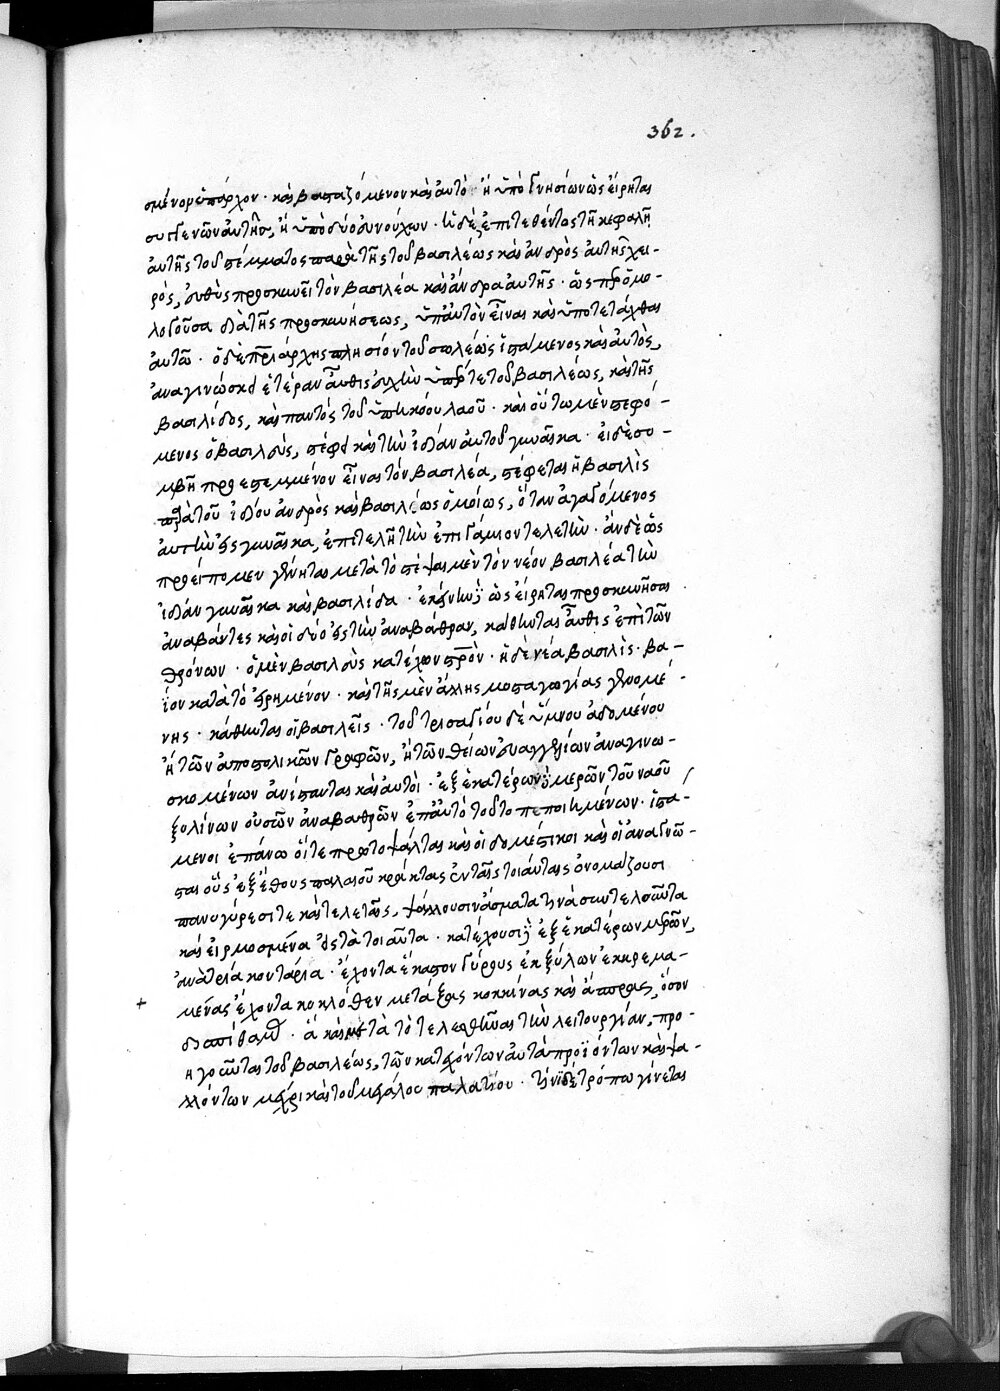 362.
σμένον ὑπάρχον · καὶ βασταζόμενον καὶ αὐτὸ ἢ ὑπὸ γνησίων ὡς εἴρηται
συγγενῶν αὐτῆς, ἢ ὑπὸ δύο εὐνούχων · ἡ δὲ ἐπιτεθέντος τῇ κεφαλῇ
αὐτῆς τοῦ στέμματος παρὰ τῆς τοῦ βασιλέως καὶ ἀνδρὸς αὐτῆς χει-
ρὸς, εὐθὺς προσκυνεῖ τὸν βασιλέα καὶ ἄνδρα αὐτῆς · ὥσπερ ὁμο-
λογοῦσα διὰ τῆς προσκυνήσεως, ὑπ' αὐτὸν εἶναι καὶ ὑποτετάχθαι
αὐτῶ · ὁ δὲ πατριάρχης πλησίον τοῦ σωλέως ἱστάμενος καὶ αὐτὸς,
ἀναγινώσκει ἑτέραν αὖθις εὐχὴν ὑπέρ τε τοῦ βασιλέως, καὶ τῆς
βασιλίδος, καὶ παντὸς τοῦ ὑπηκόου λαοῦ · καὶ οὕτω μὲν στεφό-
μενος ὁ βασιλεὺς, στέφει καὶ τὴν ἰδίαν αὐτοῦ γυναῖκα · εἰ δὲ συ-
μβῇ προεστεμμένον εἶναι τὸν βασιλέα, στέφεται ἡ βασιλὶς
παρὰ τοῦ ἰδίου ἀνδρὸς καὶ βασιλέως ὁμοίως, ὅταν ἀγαγόμενος
αὐτὴν εἰς γυναῖκα, ἐπιτελῇ τὴν ἐπιγάμιον τελετὴν · ἂν δὲ ὡς
προείπομεν γένηται μετὰ τὸ στέψαι μὲν τὸν νέον βασιλέα τὴν
ἰδίαν γυναῖκα καὶ βασιλίδα · ἐκείνην δὲ ὡς εἴρηται προσκυνῆσαι
ἀναβάντες καὶ οἱ δύο εἰς τὴν ἀναβάθραν, κάθηνται αὖθις ἐπὶ τῶν
θρόνων · ὁ μὲν βασιλεὺς κατέχων σταυρόν · ἡ δὲ νέα βασιλὶς · βα-
ΐον κατὰ τὸ εἰρημένον · καὶ τῆς μὲν ἄλλης μυσταγωγίας γενομέ-
νης · κάθηνται οἱ βασιλεῖς · τοῦ τρισαγίου δὲ ὕμνου ἀδομένου
ἢ τῶν ἀποστολικῶν γραφῶν, ἢ τῶν θείων εὐαγγελίων ἀναγινω-
σκομένων ἀνίστανται καὶ αὐτοί · ἐξ ἑκατέρων δὲ μερῶν τοῦ ναοῦ
ξυλίνων οὐσῶν ἀναβαθρῶν ἐπ' αὐτὸ τοῦτο πεποιημένων · ἱστά-
μενοι ἐπάνω οἵ τε πρωτοψάλται καὶ οἱ δομέστικοι καὶ οἱ ἀναγνῶ-
σται οὓς ἐξ ἔθους παλαιοῦ κράκτας ἐν ταῖς τοιαύταις ὀνομάζουσι
πανηγύρεσί τε καὶ τελεταῖς, ψάλλουσιν ἄσματά τινα συντελοῦντα
καὶ εἱρμοσμένα εἰς τὰ τοιαῦτα · κατέχουσι δὲ ἐξ ἑκατέρων μερῶν,
ἀνὰ τρία κοντάρια · ἔχοντα ἕκαστον γύρους ἐκ ξύλων ἐκκρεμα-
+ μένας ἔχοντα κυκλόθεν μετάξας κοκκίνας καὶ ἄσπρας, ὅσον
δισπίθαμοι · ἃ καὶ μετὰ τὸ τελεσθῆναι τὴν λειτουργίαν, προ-
ηγοῦνται τοῦ βασιλέως, τῶν κατεχόντων αὐτὰ προϊόντων καὶ ψα-
λλόντων μέχρι καὶ τοῦ μεγάλου παλατίου · τίνι δὲ τρόπω γίνεται